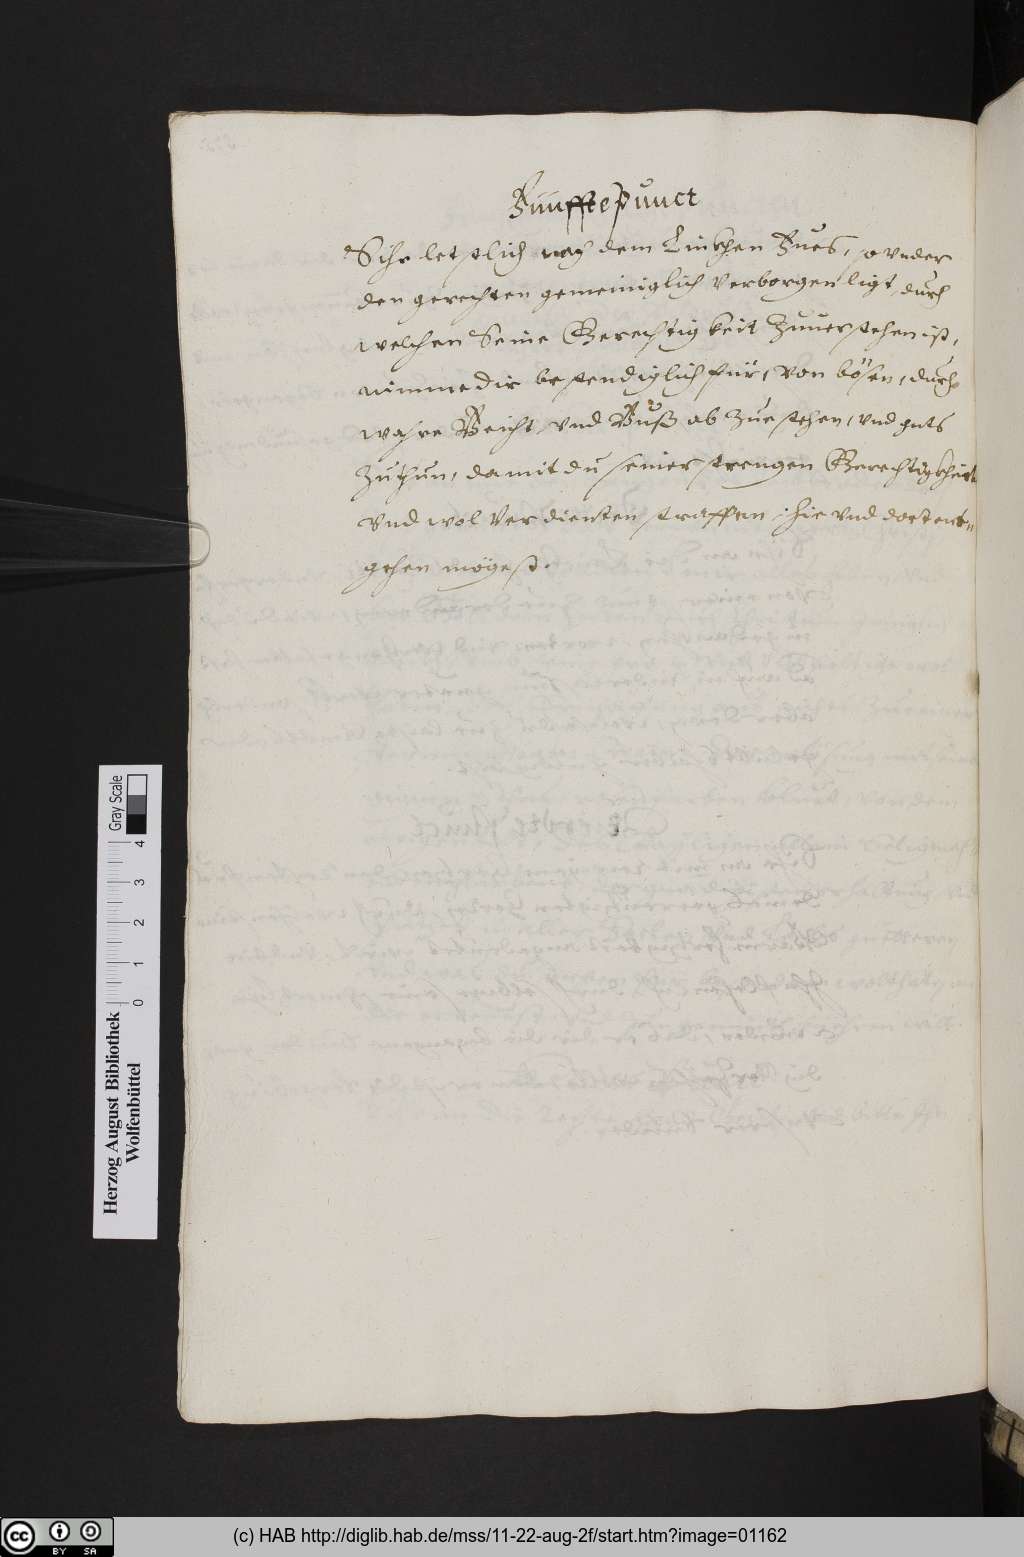 Fünffte punct
Sihe letstlich nach dem Linckhen Fues, so vnder
den gerechten gemeiniglich verborgen ligt, durch
welchen Seine Gerechtigkeit Zuuerstehen ist,
nimme dir bestendiglich für, von bösen, durch
wahre Beicht vnd Buß ab Zue stehen, vnd guts
Zuthun, damit du seiner strengen Gerechtigkheit
Vnd wol verdienten straffen, hie vnd dort ent=
gehen mögest.
Gray Scale
0 1 2 3 4
Herzog August Bibliothek
Wolfenbüttel
cc BY SA
(c) HAB http://diglib.hab.de/mss/11-22-aug-2f/start.htm?image=01162